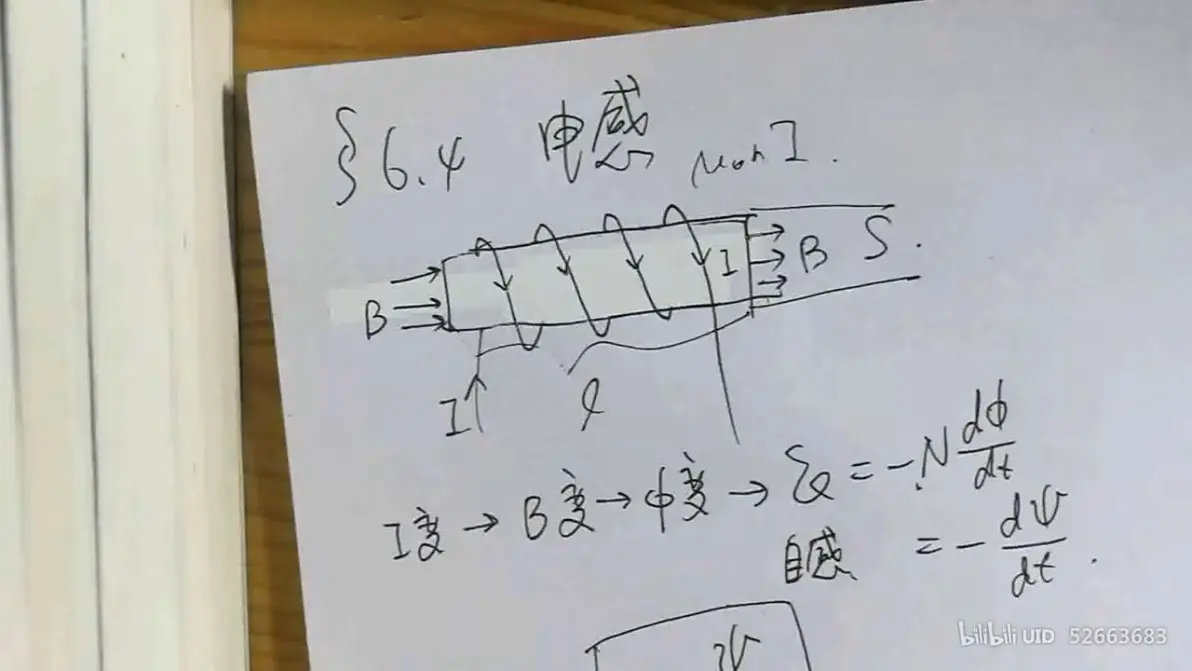 §6.4 电感 μ₀nI.
B I B S.
I l
I变 → B变 → φ变 → ℰ = -N dφ/dt
自感 = - dψ/dt.
ψ
bilibili UID 52663683